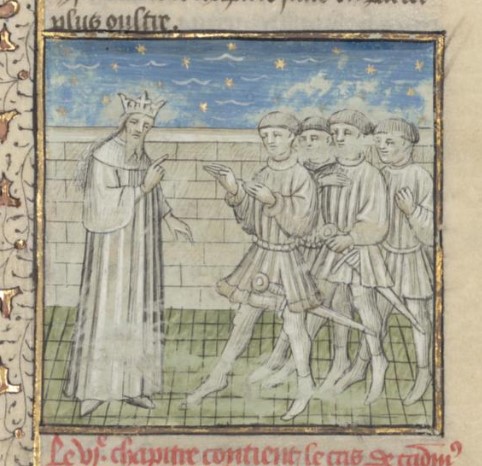 plus oultre.
Le vj.e chapitre contient le cas de cadm9